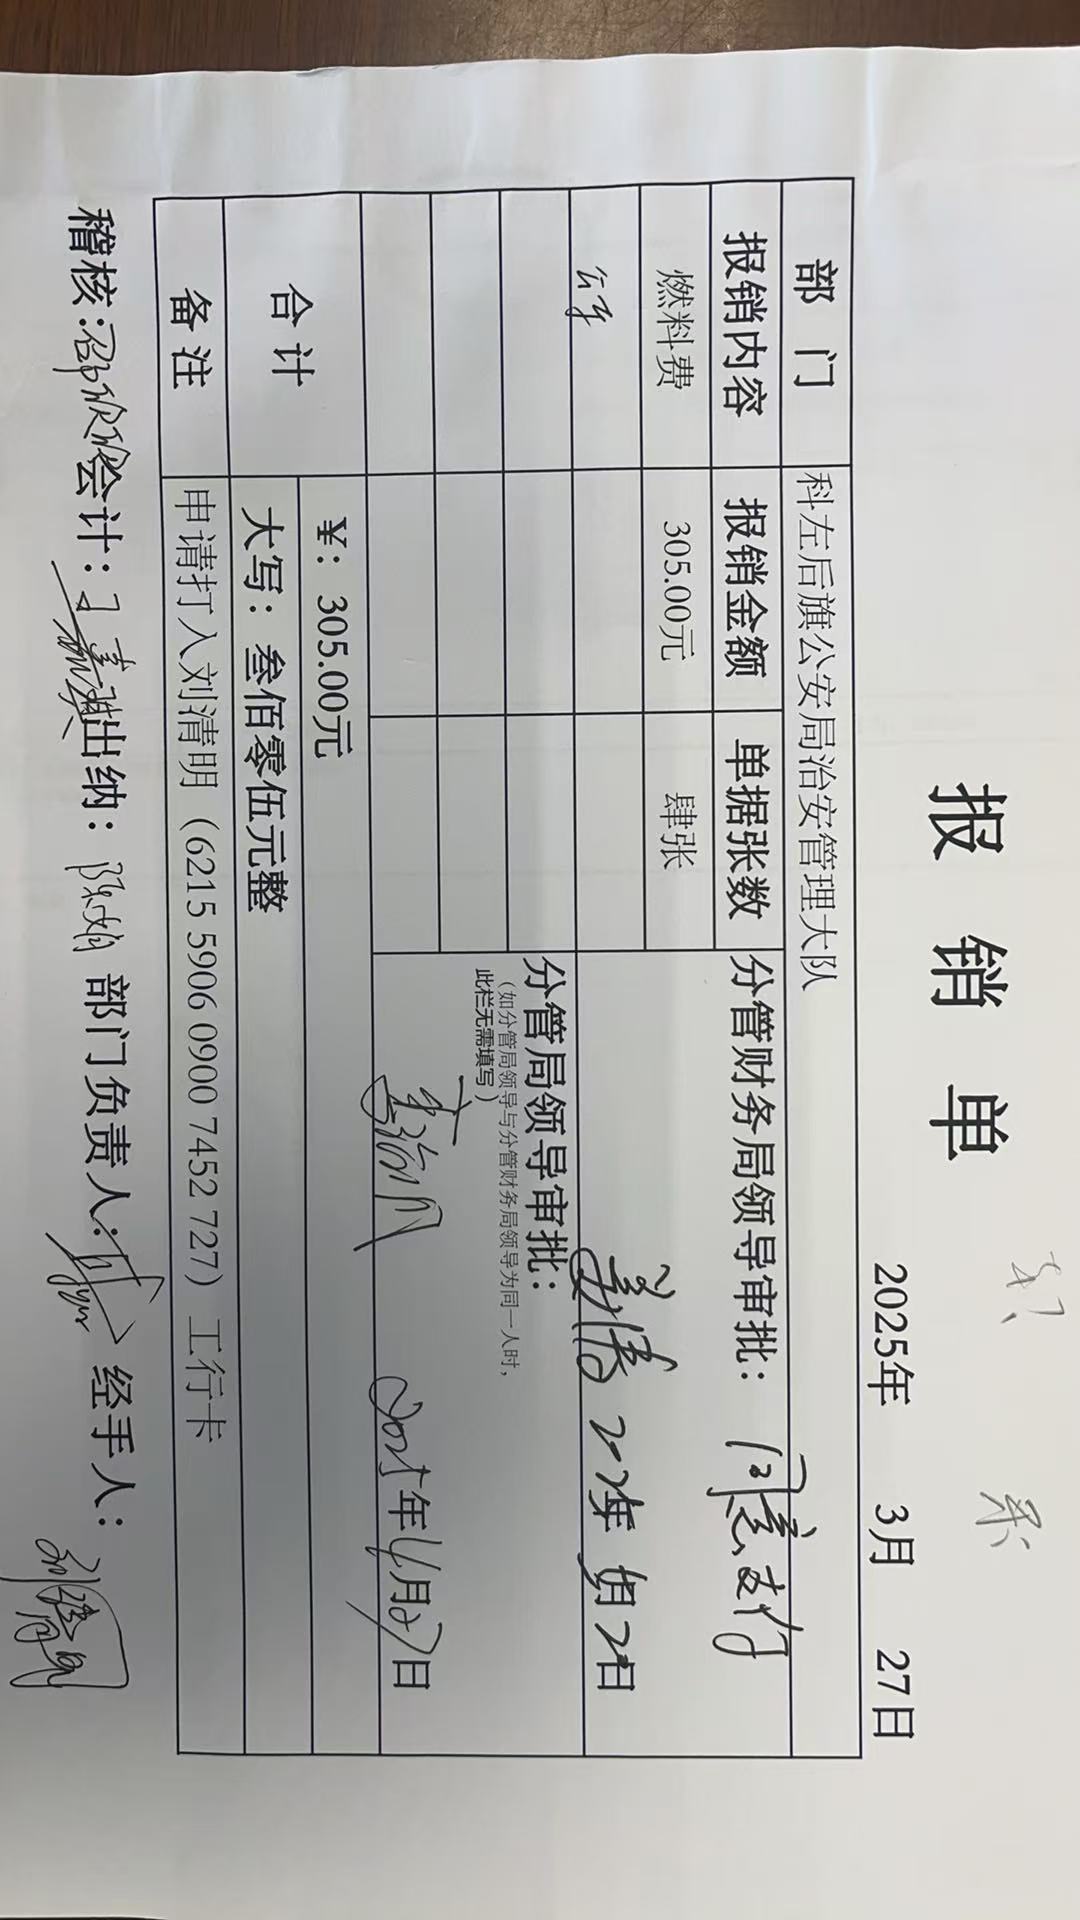 报销单
2025年 3月 27日
部门 科左后旗公安局治安管理大队
报销内容 报销金额 单据张数 分管财务局领导审批：同意支付
燃料费 305.00元 肆张
年 月 日
分管局领导审批：
（如分管局领导与分管财务局领导为同一人时，
此栏无需填写）
2025年4月27日
合计 ¥：305.00元
大写：叁佰零伍元整
备注 申请打入刘清明（6215 5906 0900 7452 727）工行卡
稽核： 会计： 出纳： 部门负责人： 经手人：刘清明